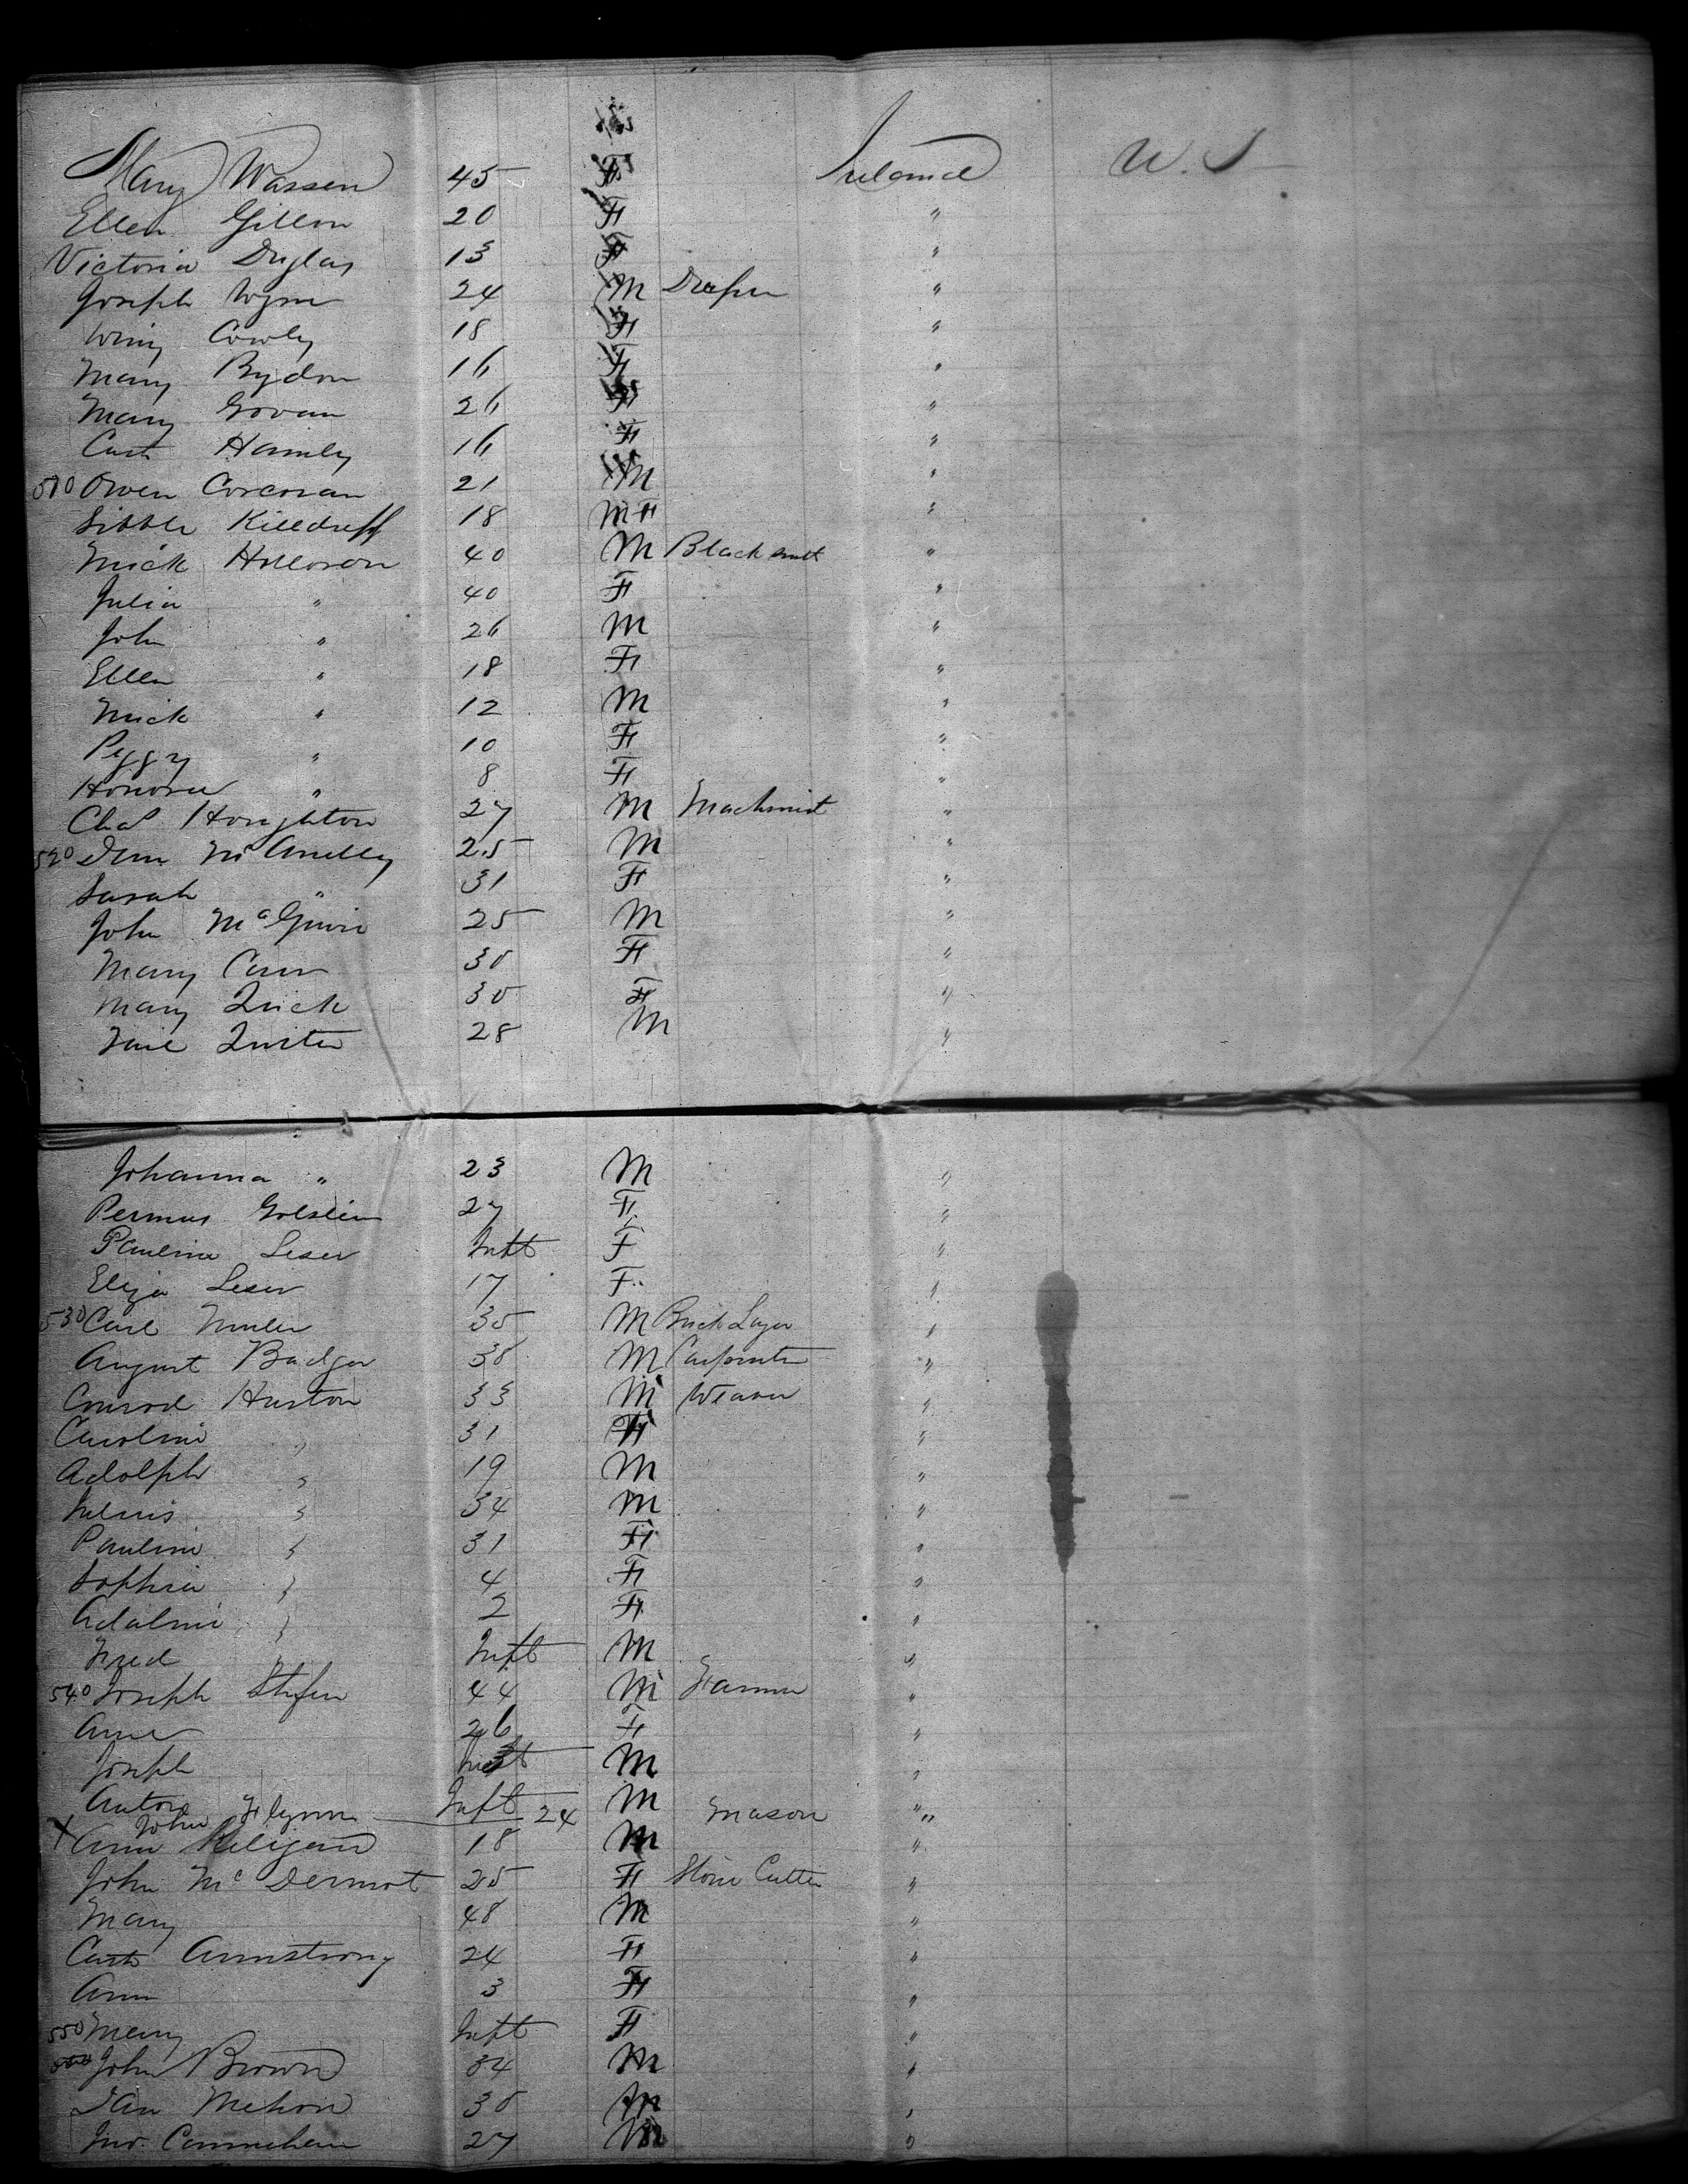 Mary Wassen 45 F Ireland U.S
Ellen Gillon 20 F "
Victoria Duglas 13 F "
Joseph Wynn 24 M Draper "
Winy Cowly 18 F "
Mary Rydon 16 F "
Mary Govan 26 F "
Cath Hamily 16 F "
510 Owen Corcoran 21 M "
Sibble Killduff 18 F "
Mick Holloron 40 M Blacksmith "
Julia " 40 F "
John " 26 M "
Ellen " 18 F "
Mick " 12 M "
Peggy " 10 F "
Honora " 8 F "
Chas Houghton 27 M Machinist "
520 McAnelly 25 M "
Sarah " 31 F "
John McGuire 25 M "
Mary Carr 30 F "
Mary Quick 30 F "
28 M "
Johanna " 23 M "
Golstein 27 F "
Paulina Leser Inft F "
Eliza Leser 17 F "
530 Carl Muller 35 M Brick Layer "
August Badger 38 M Carpenter "
Conrod Huston 33 M Weaver "
Caroline " 31 F "
Adolph " 19 M "
Julius " 34 M "
Pauline " 31 F "
Sophia " 4 F "
Adaline " 2 F "
Fred " Inft M "
540 Joseph Stefen 44 M Farmer "
Anne 26 F "
Joseph 3 M "
Anton Inft M "
x John Flynn 24 Mason "
Ann Kiligan 18 M "
John McDermot 25 F Stone Cutter "
Mary 48 M "
Cath Armstrong 24 F "
Ann 3 F "
550 Mary Inft F "
John Brown 34 M "
Dan Mehon 30 M "
Jno. Cannichan 27 M "